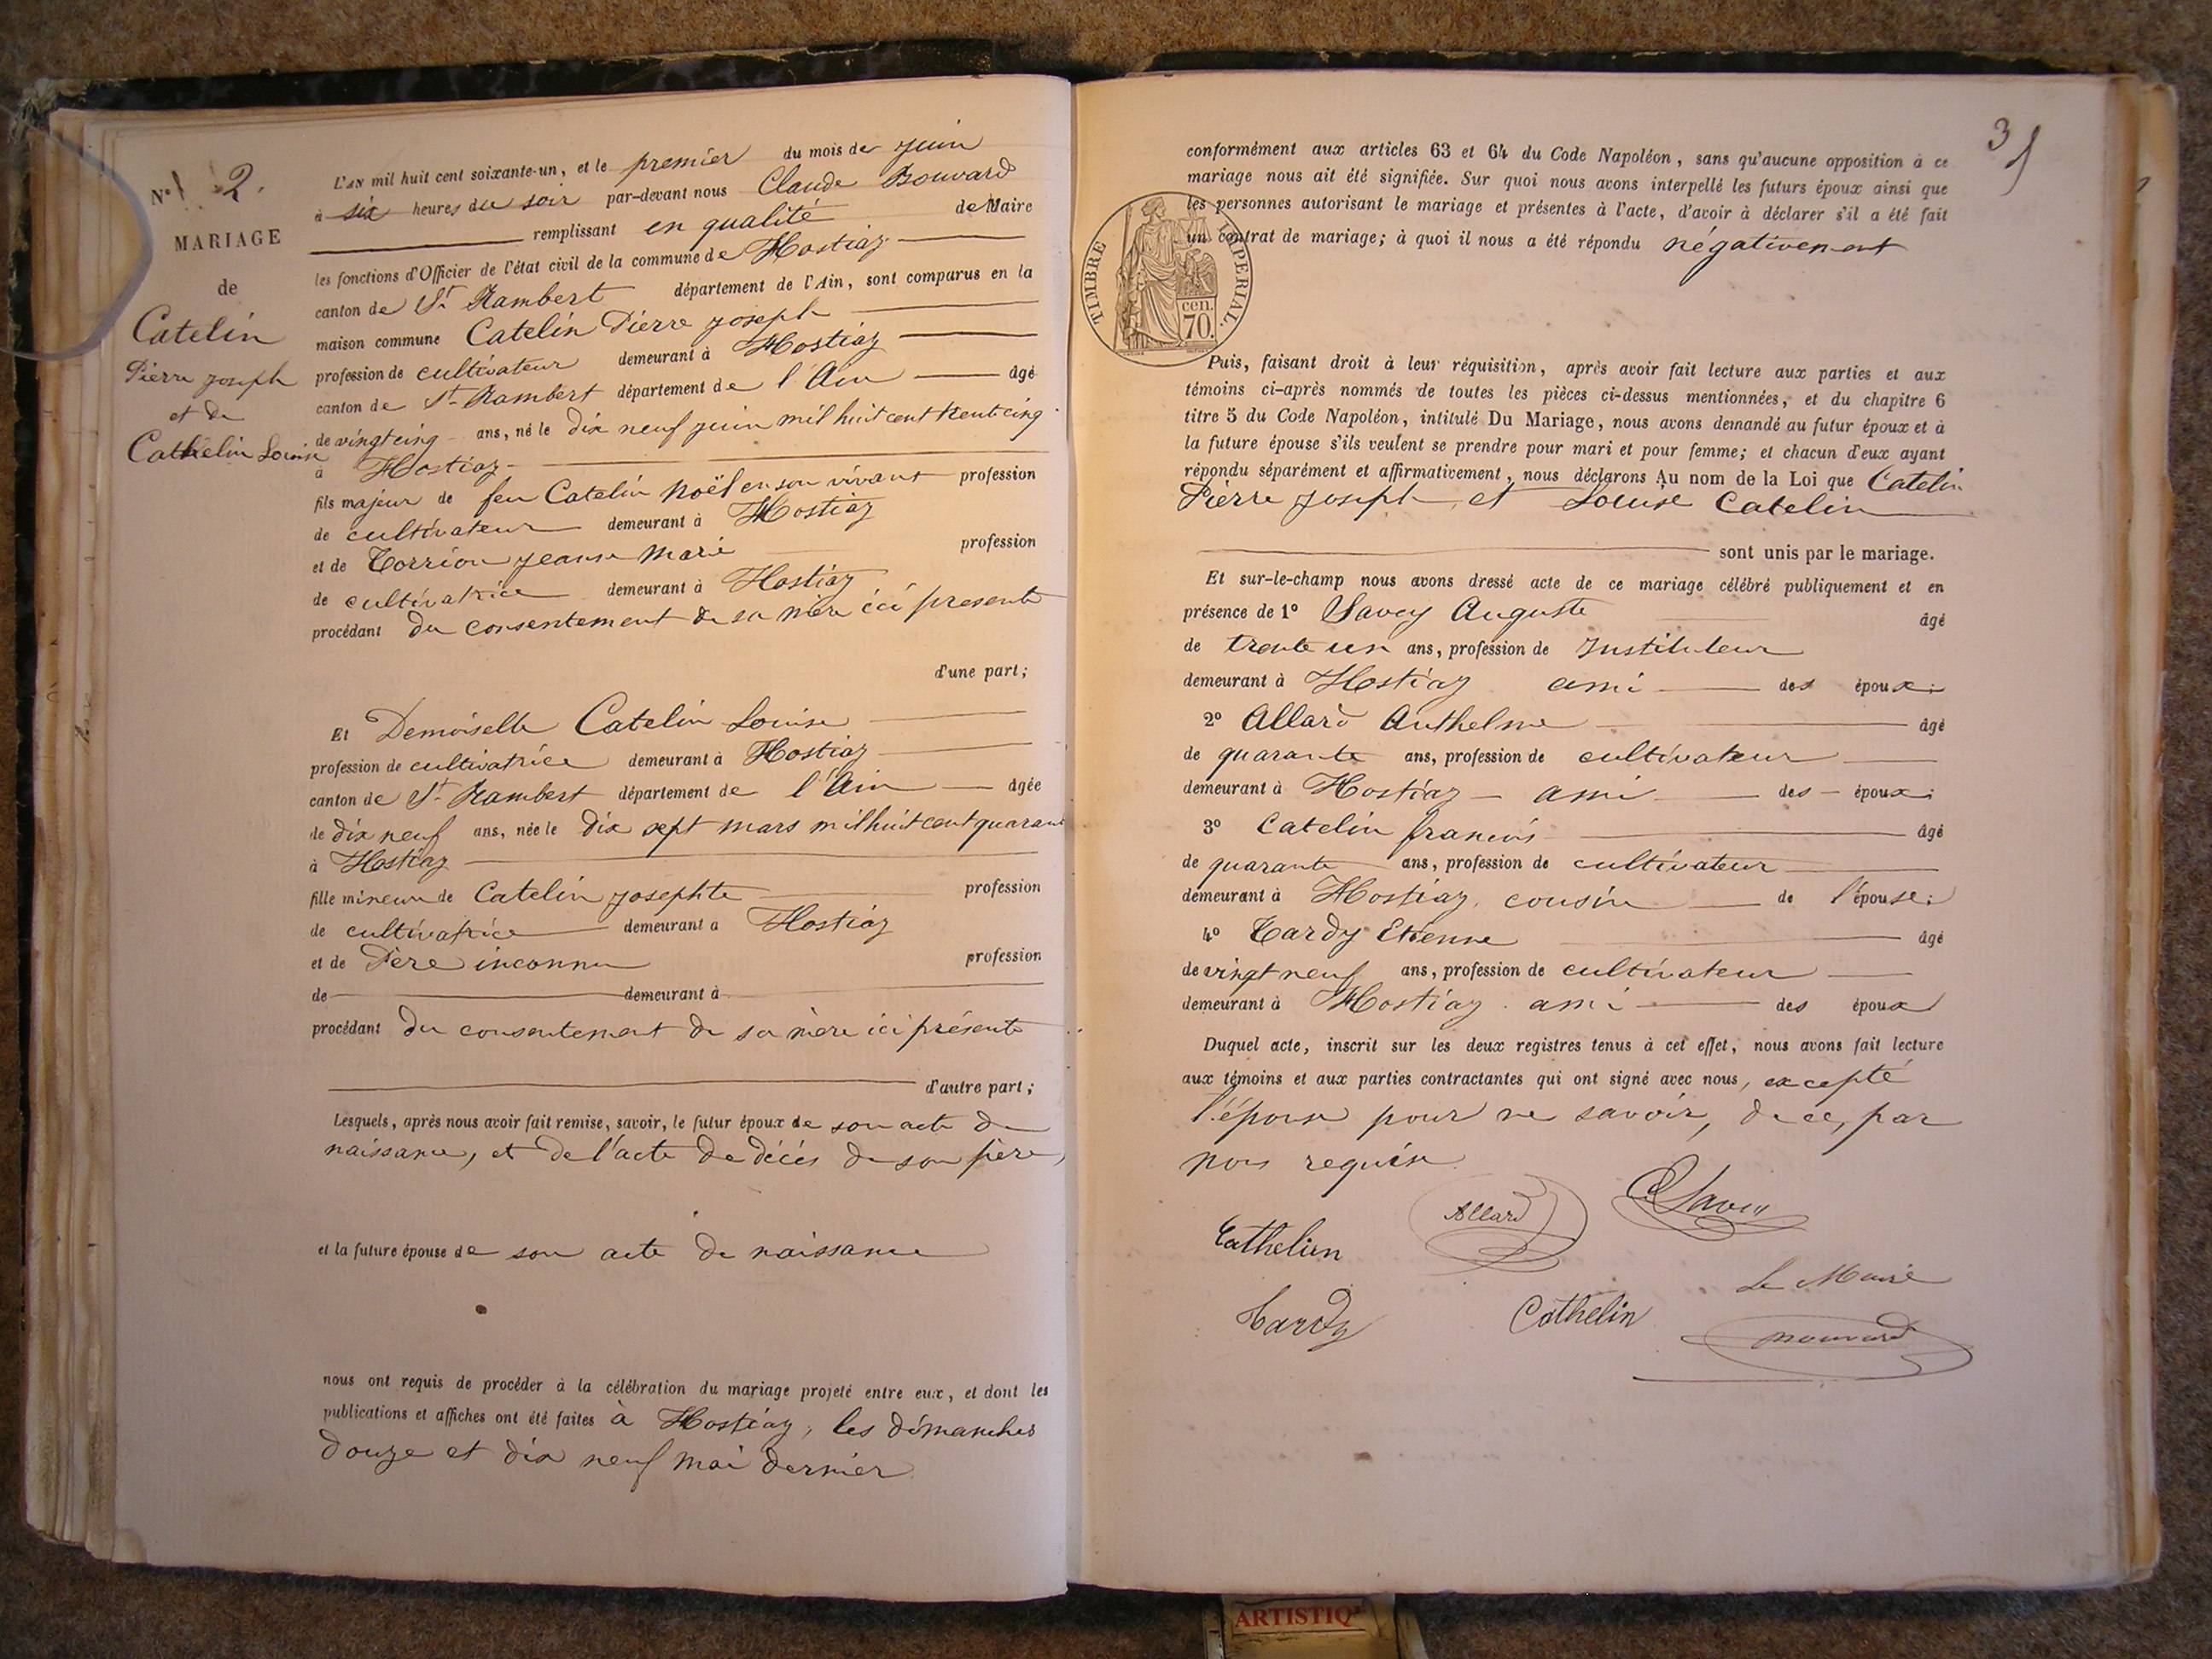 N° 2.
MARIAGE
de
Catelin
Pierre joseph
et de
Cathelin Louise
L'AN mil huit cent soixante-un, et le premier du mois de juin
à six heures du soir par-devant nous Claude Bouvard
remplissant en qualité de Maire
les fonctions d'Officier de l'état civil de la commune de Hostiaz
canton de St Rambert département de l'Ain, sont comparus en la
maison commune Catelin Pierre joseph
profession de cultivateur demeurant à Hostiaz
canton de St Rambert département de l'Ain âgé
de vingt cinq ans, né le dix neuf juin mil huit cent trente cinq
à Hostiaz
fils majeur de feu Catelin Noël en son vivant profession
de cultivateur demeurant à Hostiaz
et de Torrion jeanne Marie profession
de cultivatrice demeurant à Hostiaz
procédant du consentement de sa mère ici presente
d'une part;
Et Demoiselle Catelin Louise
profession de cultivatrice demeurant à Hostiaz
canton de St Rambert département de l'Ain âgée
de dix neuf ans, née le dix sept mars mil huit cent quarante
à Hostiaz
fille mineure de Catelin josephte profession
de cultivatrice demeurant a Hostiaz
et de Père inconnu profession
de demeurant à
procédant du consentement de sa mère ici présente
d'autre part;
Lesquels, après nous avoir fait remise, savoir, le futur époux de son acte de
naissance, et de l'acte de décès de son père,
et la future épouse de son acte de naissance
nous ont requis de procéder à la célébration du mariage projeté entre eux, et dont les
publications et affiches ont été faites à Hostiaz, les dimanches
douze et dix neuf mai dernier
31
conformément aux articles 63 et 64 du Code Napoléon, sans qu'aucune opposition à ce
mariage nous ait été signifiée. Sur quoi nous avons interpellé les futurs époux ainsi que
les personnes autorisant le mariage et présentes à l'acte, d'avoir à déclarer s'il a été fait
un contrat de mariage; à quoi il nous a été répondu négativement
TIMBRE IMPERIAL.
cen.
70.
Puis, faisant droit à leur réquisition, après avoir fait lecture aux parties et aux
témoins ci-après nommés de toutes les pièces ci-dessus mentionnées, et du chapitre 6
titre 5 du Code Napoléon, intitulé Du Mariage, nous avons demandé au futur époux et à
la future épouse s'ils veulent se prendre pour mari et pour femme; et chacun d'eux ayant
répondu séparément et affirmativement, nous déclarons Au nom de la Loi que Catelin
Pierre joseph et Louise Catelin
sont unis par le mariage.
Et sur-le-champ nous avons dressé acte de ce mariage célébré publiquement et en
présence de 1° Savey Auguste âgé
de trente un ans, profession de Instituteur
demeurant à Hostiaz ami des époux;
2° Allard Anthelme âgé
de quarante ans, profession de cultivateur
demeurant à Hostiaz ami des époux;
3° Catelin francois âgé
de quarante ans, profession de cultivateur
demeurant à Hostiaz cousin de l'épouse;
4° Tardy Etienne âgé
de vingt neuf ans, profession de cultivateur
demeurant à Hostiaz ami des époux
Duquel acte, inscrit sur les deux registres tenus à cet effet, nous avons fait lecture
aux témoins et aux parties contractantes qui ont signé avec nous, excepté
l'épouse pour ne savoir, de ce, par
nous requise
Allard Savey
Cathelin
Le Maire
Tardy Cathelin Bouvard
ARTISTIQ